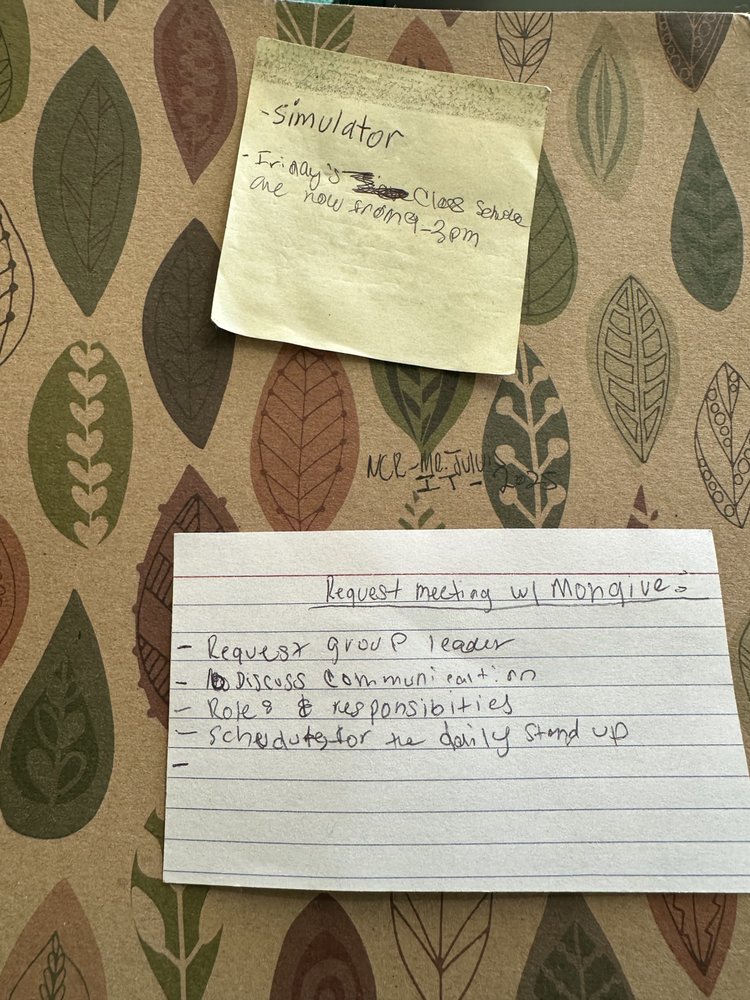 - Simulator
- Friday's Class Schedule
are now from 9-3pm
NCR - MR. Julius
IT - 2025
Request meeting w/ Mongive:
- Request group leader
- Discuss Communication
- Roles & responsibities
- Schedules for the daily stand up
-